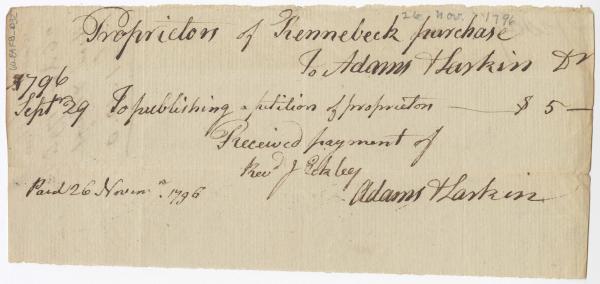 26 Nov. 1796
Proprietors of Kennebeck purchase
To Adams & Larkin Dr
1796
Sept 29 To publishing a petition of proprietors — $ 5 —
Received payment of
Revd J Eckley
Paid 26 Novemr. 1796
Adams & Larkin